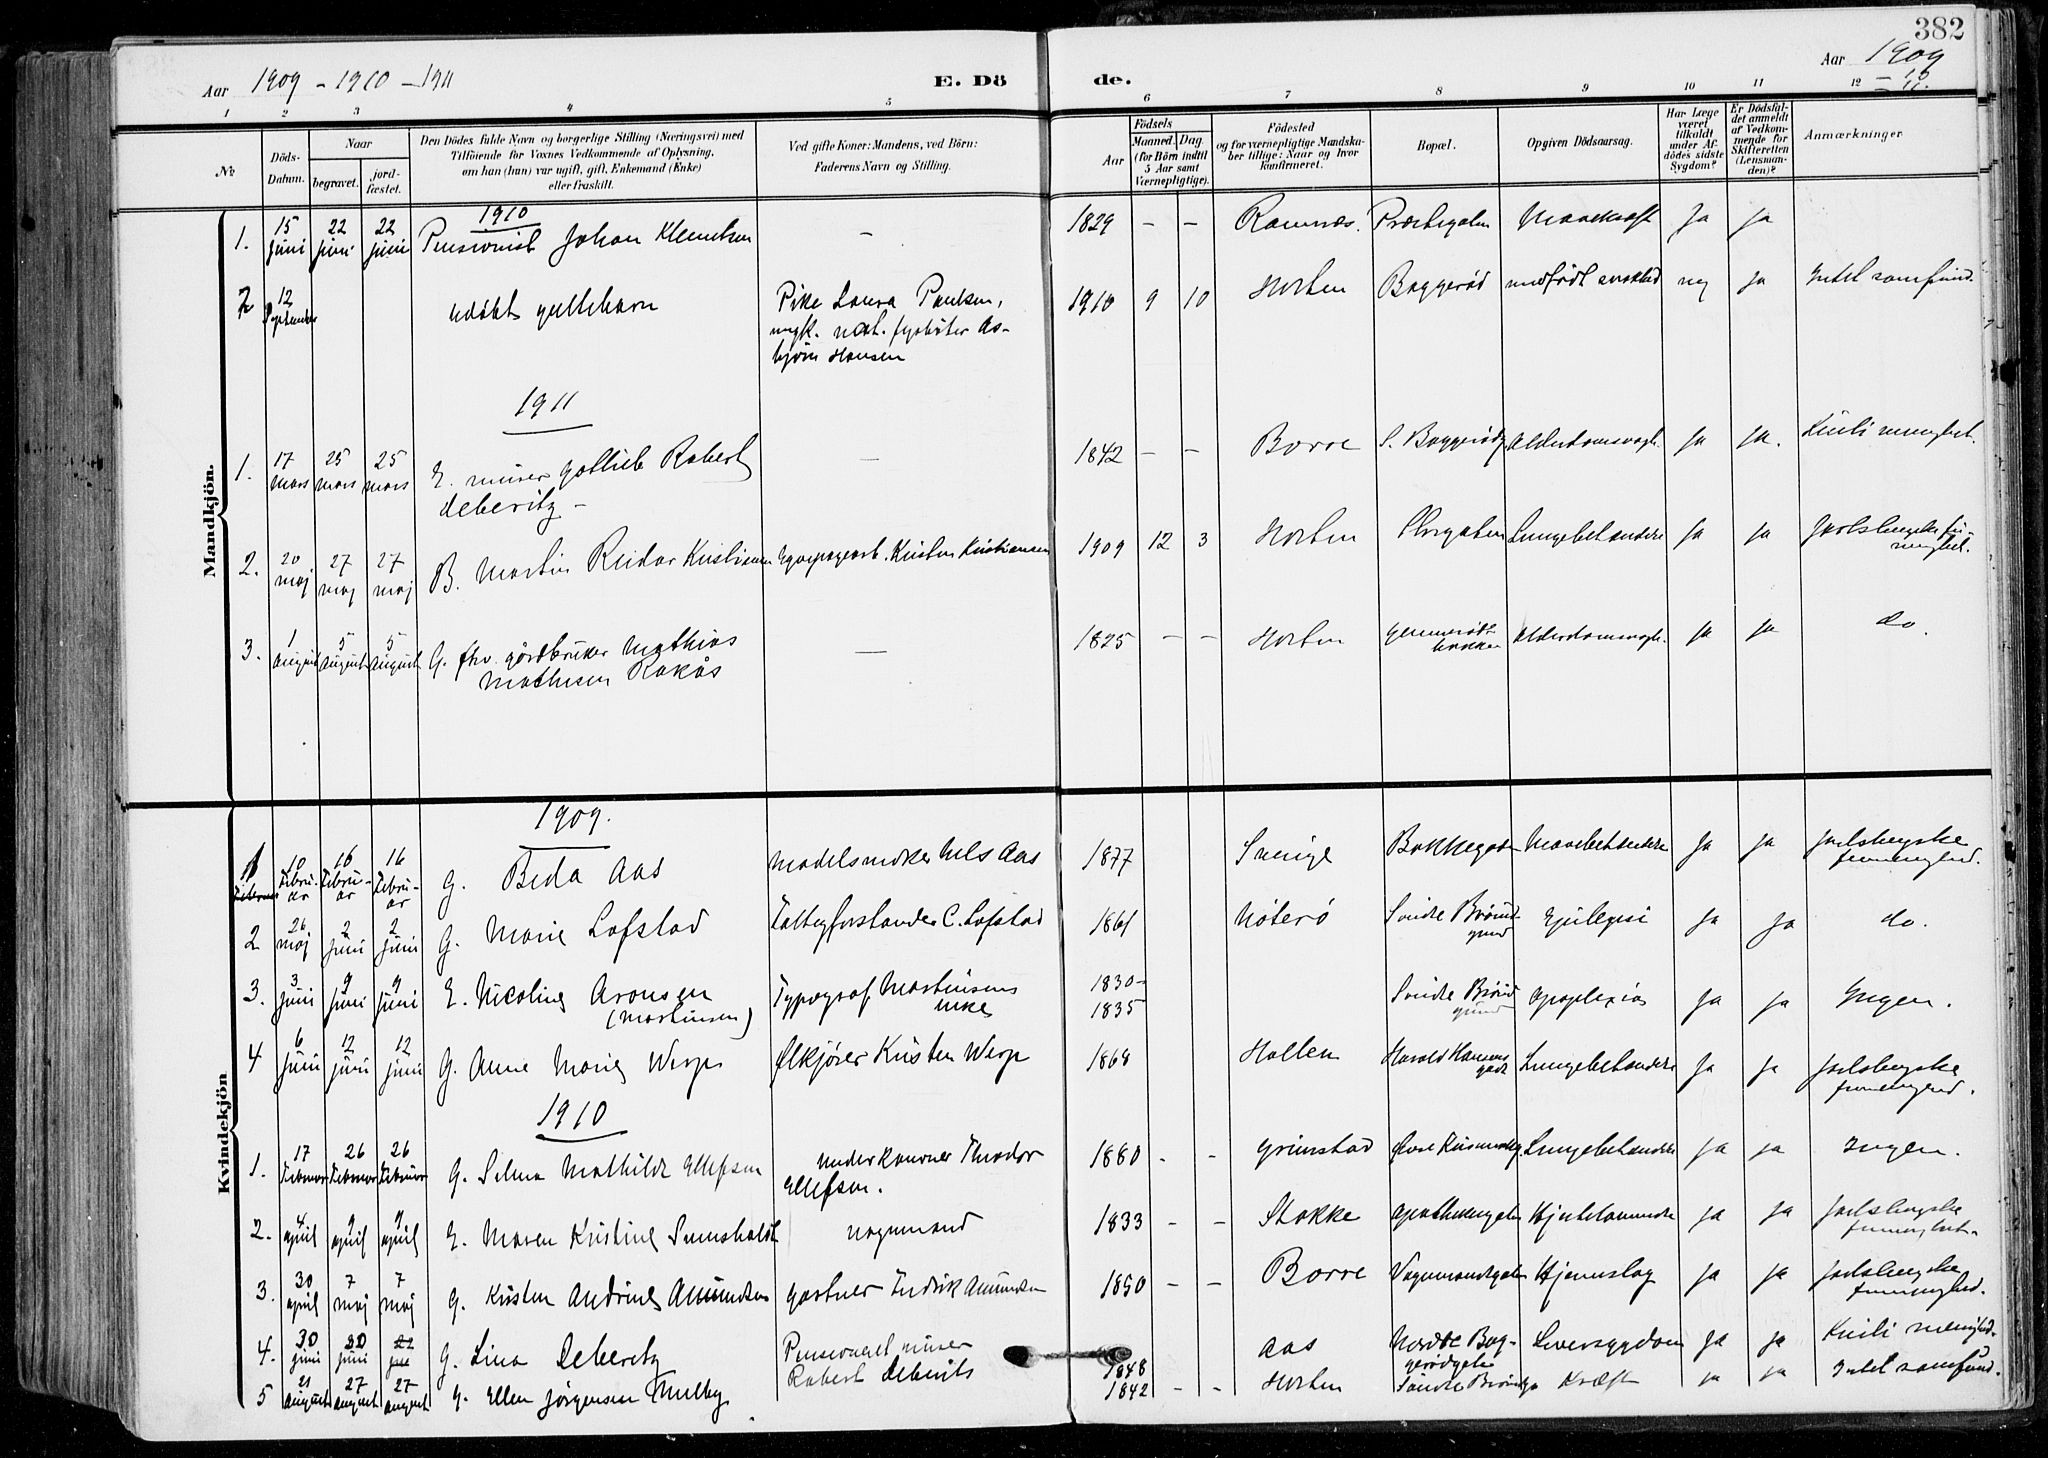 382
Aar 1909 - 1910 - 1911
E. Dö de.
Aar 1909
- 10
- 11.
1 2 3 4 5 6 7 8 9 10 11 12
No
Döds-Datum.
Naar
begravet.
jord-fæstet.
Den Dödes fulde Navn og borgerlige Stilling (Næringsvei) med
Tilföiende for Voxnes Vedkommende af Oplysning,
om han (hun) var ugift, gift, Enkemand (Enke)
eller fraskilt.
Ved gifte Koner: Mandens, ved Börn:
Faderens Navn og Stilling.
Födsels
Aar
Maaned. Dag.
(for Börn indtil
5 Aar samt
Værnepligtige).
Födested
og for værnepligtige Mandska-
ber tillige: Naar og hvor
konfirmeret.
Bopæl.
Opgiven Dödsaarsag.
Har Læge
været
tilkaldt
under Af-
dödes sidste
Sygdom?
Er Dödsfal-
det anmeldt
af Vedkom-
mende for
Skifteretten
(Lensman-
den)?
Anmærkninger
Mandkjön.
1910
1. 15 juni 22 juni 22 juni Pensionist Johan Klemetsen - 1829 - - Ramnæs. Præstegaten Mavekræft Ja Ja
2 12 September udøbt guttebarn Pike Laura Paulsen, 1910 9 10 Horten Baggerød medfødt svakhed nej Ja Intet samfund.
ugift. nat. fyrbøter As-
bjørn Hansen
1911
1. 17 mars 25 mars 25 mars E. murer Gottlieb Robert - 1842 - - Borre S. Baggerødg Alderdomssvagh. Ja Ja. Kristi menighet.
Deberitz -
2. 20 maj 27 maj 27 maj B. Martin Reidar Kristiansen Kristen Kristiansen 1909 12 3 Horten Storgaten Lungebetændelse Ja Ja Jarlsbergske fri-
menighet.
3. 1 August 5 August 5 August G. fhv. gårdbruker Mathias - 1825 - - Horten bakken Alderdomssvagh. Ja Ja do.
MathisenRåkås
Kvindekjön
1909.
1 10 Februar 16 Februar 16 Februar G. Beda Aas Modelsnekker Nels Aas 1877 Sverige Bakkegat Mavebetændelse Ja Ja Jarlsbergske
frimenighed.
2 26 maj 2 juni 2 juni G. Marie Lofstad C. Lofstad 1861 Nøterø Søndre Brårud-
grund Epilepsi Ja Ja do.
3. 3 juni 9 juni 9 juni E. Nicoline Aronsen Typograf Martinsens 1830- Søndre Brårud
(Martinsen) enke 1835 grund Apoplexia Ja Ja Ingen.
4 6 juni 12 juni 12 juni G. Anne Marie Werp Ølkjører Kristen Werp 1868 Holten Harald Hansens
gade Lungebetændelse Ja Ja Jarlsbergske
frimenighed.
1910
1. 17 Februar 26 Februar 26 Februar G. Selma Mathilde Ellefsen Underkanoner Theodor 1880 - - Grimstad Lungebetændelse Ja Ja Ingen.
Ellefsen.
2. 4 april 9 april 9 april E. Maren Kristine 1833 - - Stokke Apothekergaten Ja Ja Jarlsbergske
frimenighet.
3. 30 april 7 maj 7 maj G. Kristen Andrine Amundsen gartner Fredrik Amundsen 1850 - - Borre Vognmandsgaten Hjerneslag Ja Ja Jarlsbergske
frimenighed.
4. 30 juni G. Lina Deberitz Pensioneret murer 1848 Aas Nordre Bag-
gerødgate Leversygdom Ja Ja Kristi menighed.
Robert Deberitz
5 21 August 27 August 27 August G. Ellen Jørgensen Mulby 1842 - - Horten Søndre Kræft Ja Ja Intet samfund.